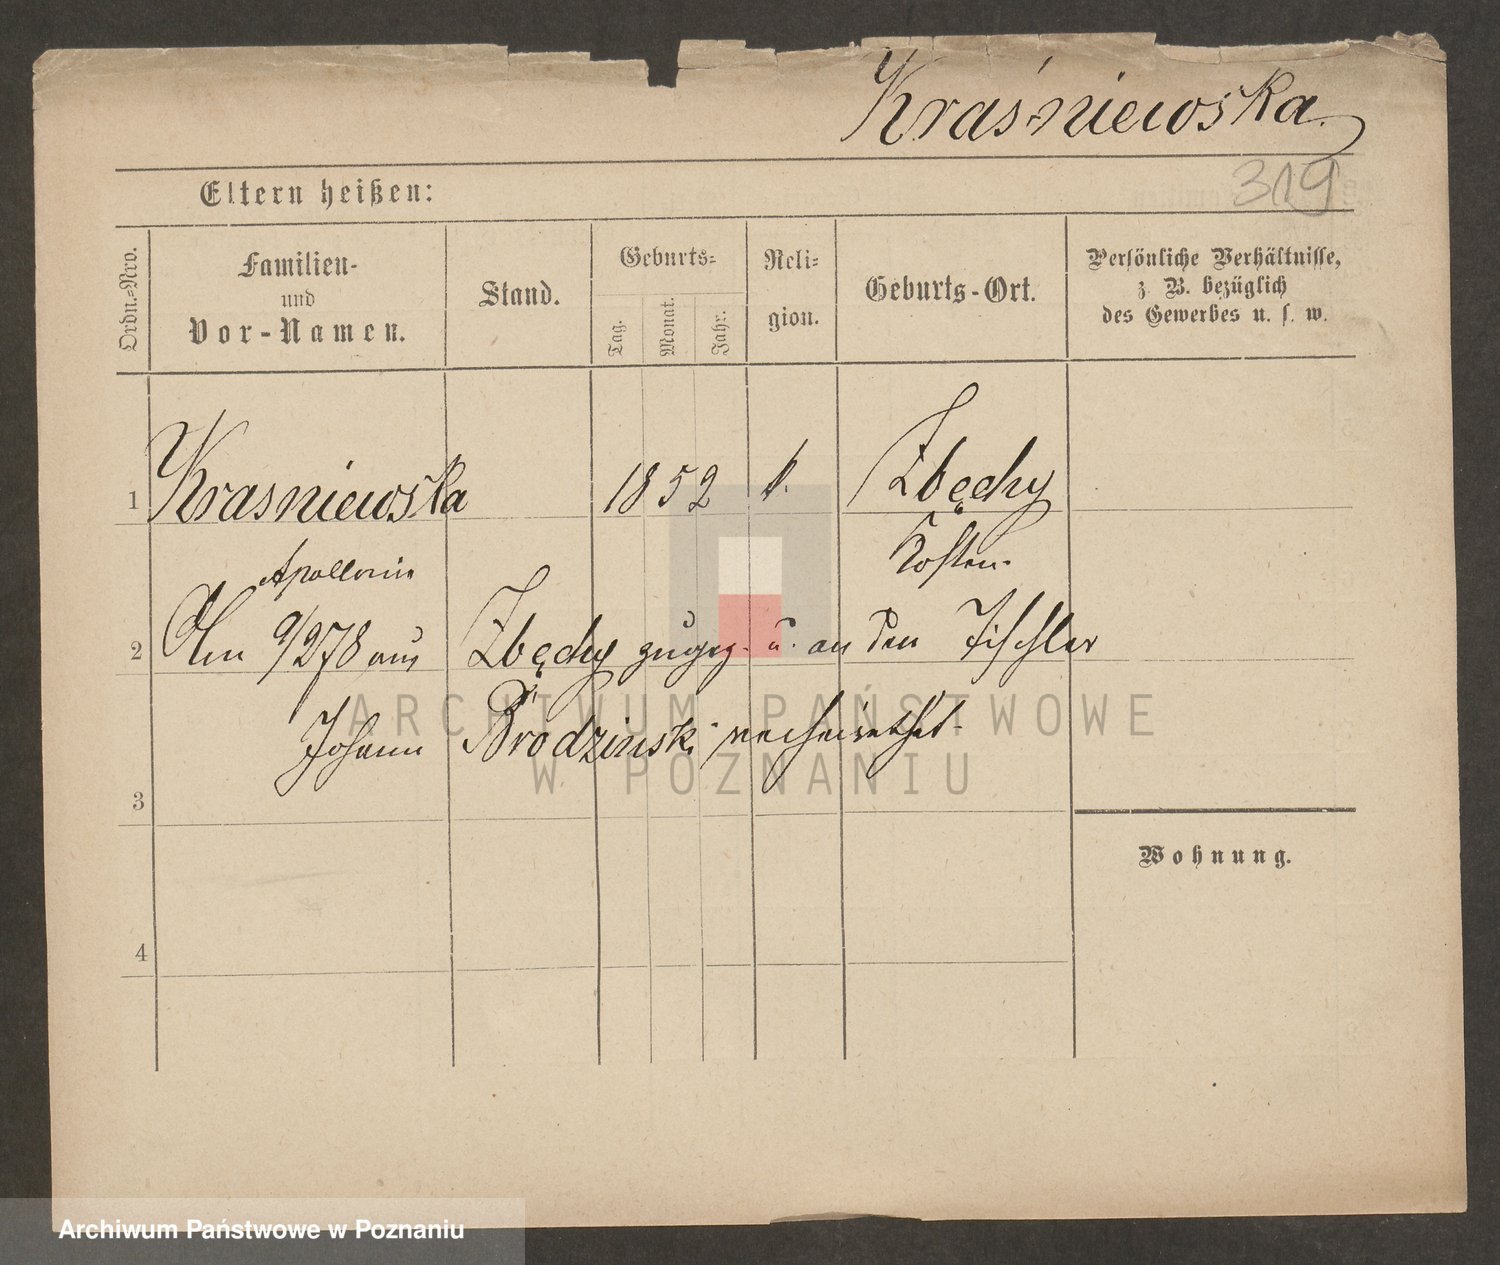 Kraśniewska
319
Eltern heißen:
Ordn.=Nro.
Familien-
und
Vor-Namen.
Stand.
Geburts=
Tag.
Monat.
Jahr.
Reli=
gion.
Geburts-Ort.
Persönliche Verhältnisse,
z. B. bezüglich
des Gewerbes u. s. w.
1 Krasniewska 1852 k. Zbęchy
Apollonia Kosten.
2 Am 9/2 78 aus Zbęchy zugez. u. an den Tischler
Johann Brodzinski verheirathet.
3
Wohnung.
4
ARCHIWUM PAŃSTWOWE
W POZNANIU
Archiwum Państwowe w Poznaniu